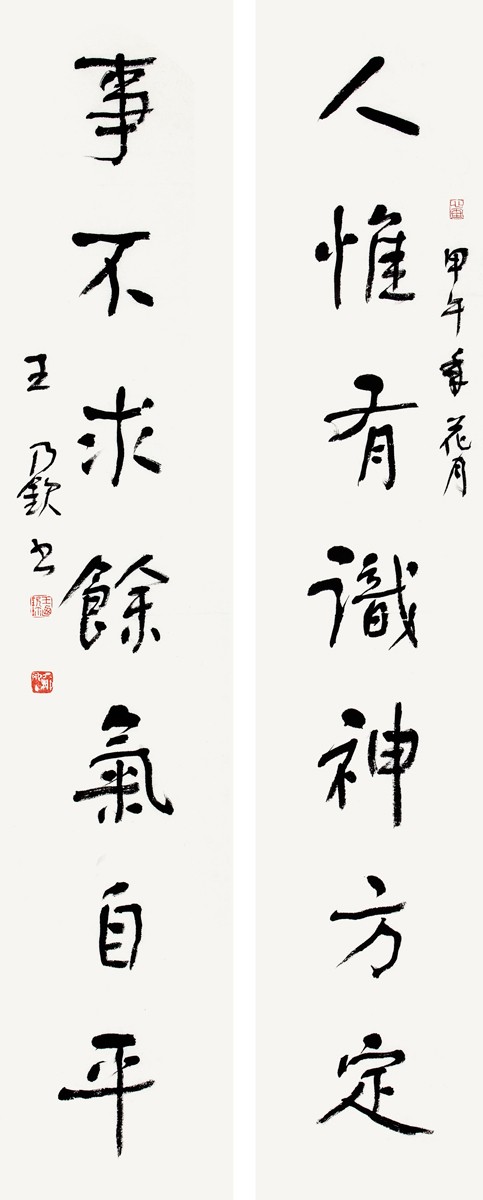 甲午季花月
人惟有識神方定
事不求餘氣自平
王乃欽書